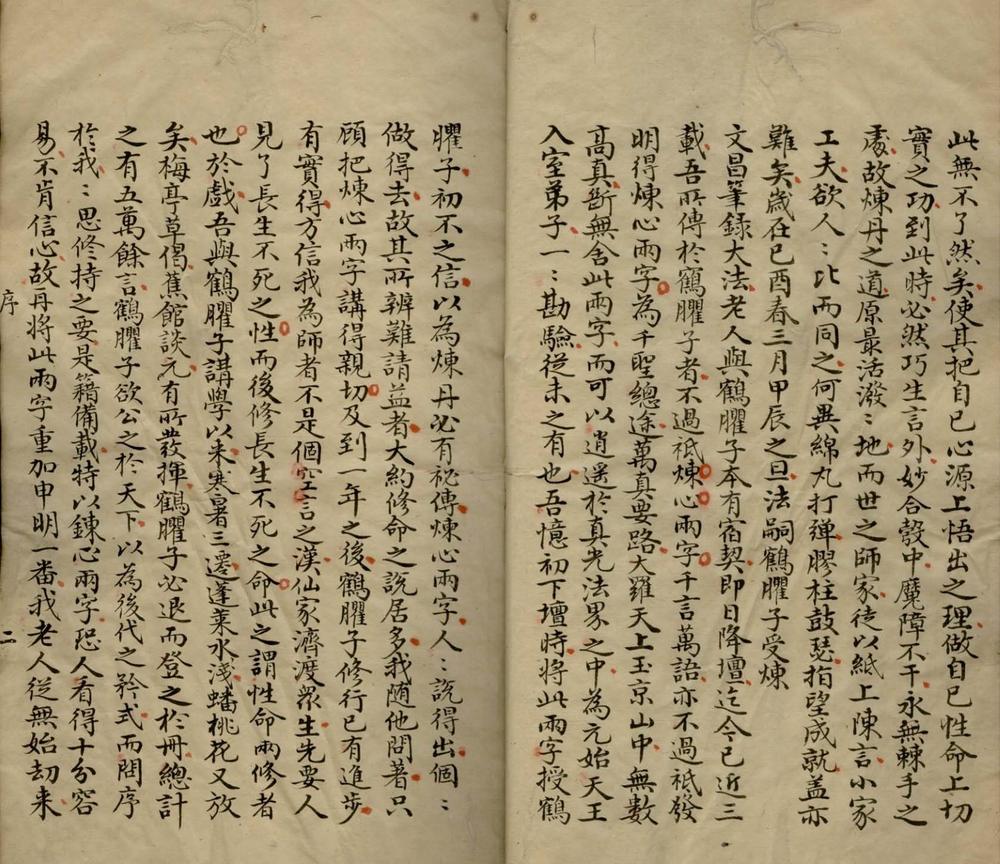 此無不了然矣使其把自己心源上悟出之理做自己性命上切
實之功到此時必然巧生言外妙合彀中魔障不干永無棘手之
處故煉丹之道原最活潑〻地而世之師家徒以紙上陳言小家
工夫欲人〻比而同之何異綿丸打彈膠柱鼓瑟指望成就盖亦
難矣歲在己酉春三月甲辰之旦法嗣鶴臞子受煉
文昌筆録大法老人與鶴臞子夲有宿契即日降壇迄今已近三
載吾所傳於鶴臞子者不過祇煉心兩字千言萬語亦不過祇發
明得煉心兩字為千聖總途萬真要路大羅天上玉京山中無數
高真斷無舍此兩字而可以逍遥於真光法界之中為元始天王
入室弟子一〻勘驗從未之有也吾憶初下壇時將此兩字授鶴
臞子初不之信以為煉丹必有祕傳煉心兩字人〻説得出個〻
做得去故其所辨難請益者大約修命之説居多我随他問著只
顧把煉心兩字講得親切及到一年之後鶴臞子修行已有進步
有實得方信我為師者不是個空言之漢仙家濟渡眾生先要人
見了長生不死之性而後修長生不死之命此之謂性命兩修者
也於戲吾與鶴臞子講學以来寒暑三遷蓬萊水淺蟠桃花又放
矣梅亭草偈蕉館談元有所發揮鶴臞子必退而登之於冊總計
之有五萬餘言鶴臞子欲公之於天下以為後代之矜式而問序
於我〻思修持之要是籍備載特以錬心兩字恐人看得十分容
易不肯信心故再將此兩字重加申明一番我老人従無始刼来
序
二